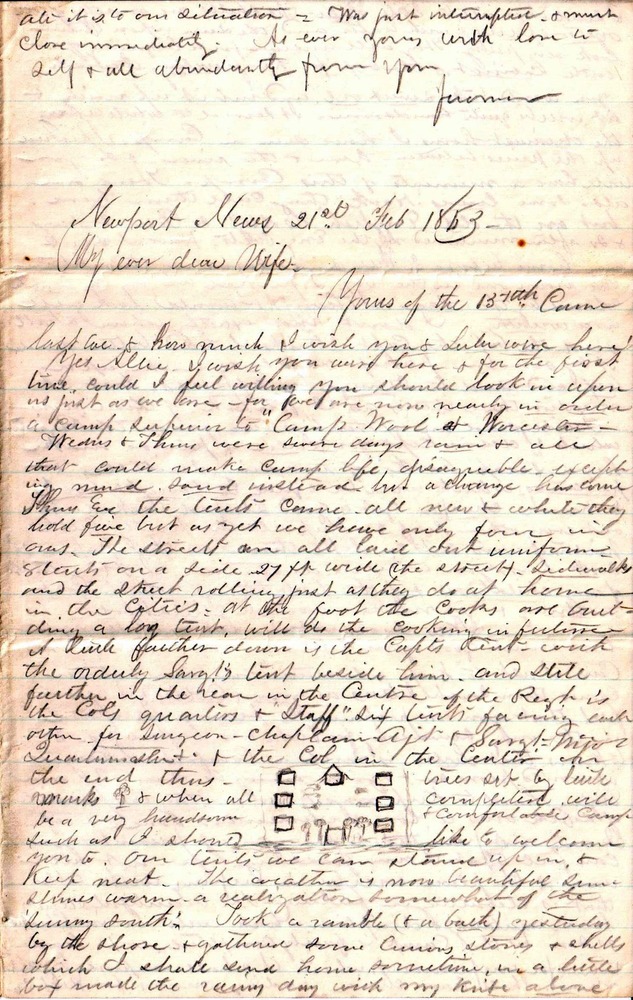 all it is to our situation = Was just interrupted & must
close immediately. As ever yours with love to
self & all abundantly from your
Newport News 21st Feb 1863 -
My ever dear Wife.
Yours of the 13th Came
last eve & how much I wish you & Lulu were here!
Yes Allie, I wish you were here & for the first
time could I feel willing you should look in upon
us just as we are - for we are now nearly in order
a camp superior to "Camp Wool" at Worcester -
Weds & Thurs were severe days rain & all
that could make Camp life, disagreeable - except
ing mud. Sand instead but a change has come
Thurs Eve the tents came all new & white they
hold five but as yet we have only four in
ours. The streets are all laid out uniform
tents on a side 27 ft wide (the street) - sidewalks
and the street rolling just as they do at home
in the Cities - at the foot the Cooks are buil-
ding a log tent, will do the cooking in future
A little farther down is the Capts tent - with
the orderly Sargt's tent beside him. and still
further in the rear in the Centre of the Regt is
the Cols quarters & "Staff" six tents facing each
other for Surgeon - Chaplain - Ajt & Sargt - Major
Quartermaster & the Col in the Center on
the end thus - trees set by little
marks & when all completed will
be a very handsome & Comfortable Camp
such as I should like to welcome
you to. Our tents we can stand up in &
Keep neat. The weather is now beautiful sun
shines warm - a realization somewhat of the
"sunny south". Took a ramble (& a bath) yesterday
by the shore & gathered some Curious stones & shells
which I shall send home sometime, in a little
box made the rainy day with my knife alone